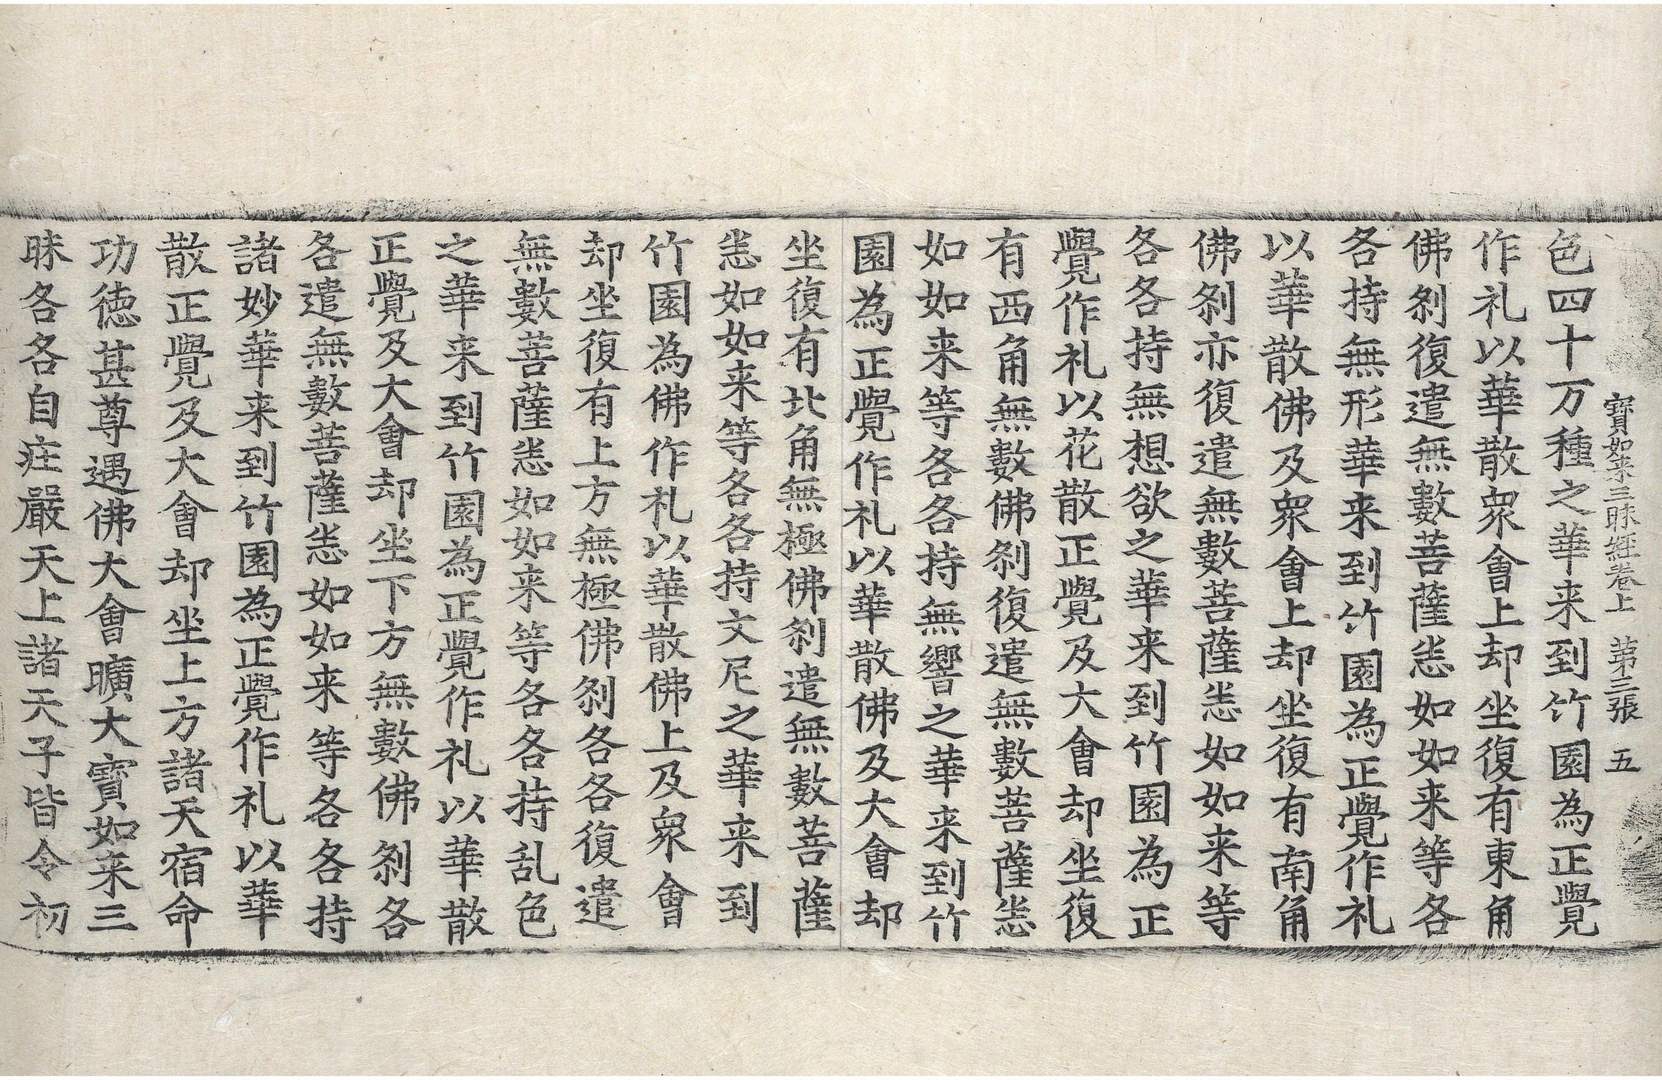 寶如来三昧經卷上　第三張　五
色四十万種之華来到竹園為正覺
作礼以華散衆會上却坐復有東角
佛刹復遣無數菩薩恙如如来等各
各持無形華来到竹園為正覺作礼
以華散佛及衆會上却坐復有南角
佛刹亦復遣無數菩薩恙如如来等
各各持無想欲之華来到竹園為正
覺作礼以花散正覺及大會却坐復
有西角無數佛刹復遣無數菩薩恙
如如来等各各持無響之華来到竹
園為正覺作礼以華散佛及大會却
坐復有北角無極佛刹遣無數菩薩
恙如如来等各各持文尼之華来到
竹園為佛作礼以華散佛上及衆會
却坐復有上方無極佛刹各各復遣
無數菩薩恙如如来等各各持乱色
之華来到竹園為正覺作礼以華散
正覺及大會却坐下方無數佛刹各
各遣無數菩薩恙如如来等各各持
諸妙華来到竹園為正覺作礼以華
散正覺及大會却坐上方諸天宿命
功徳甚尊遇佛大會曠大寳如来三
昧各各自庄嚴天上諸天子皆令初